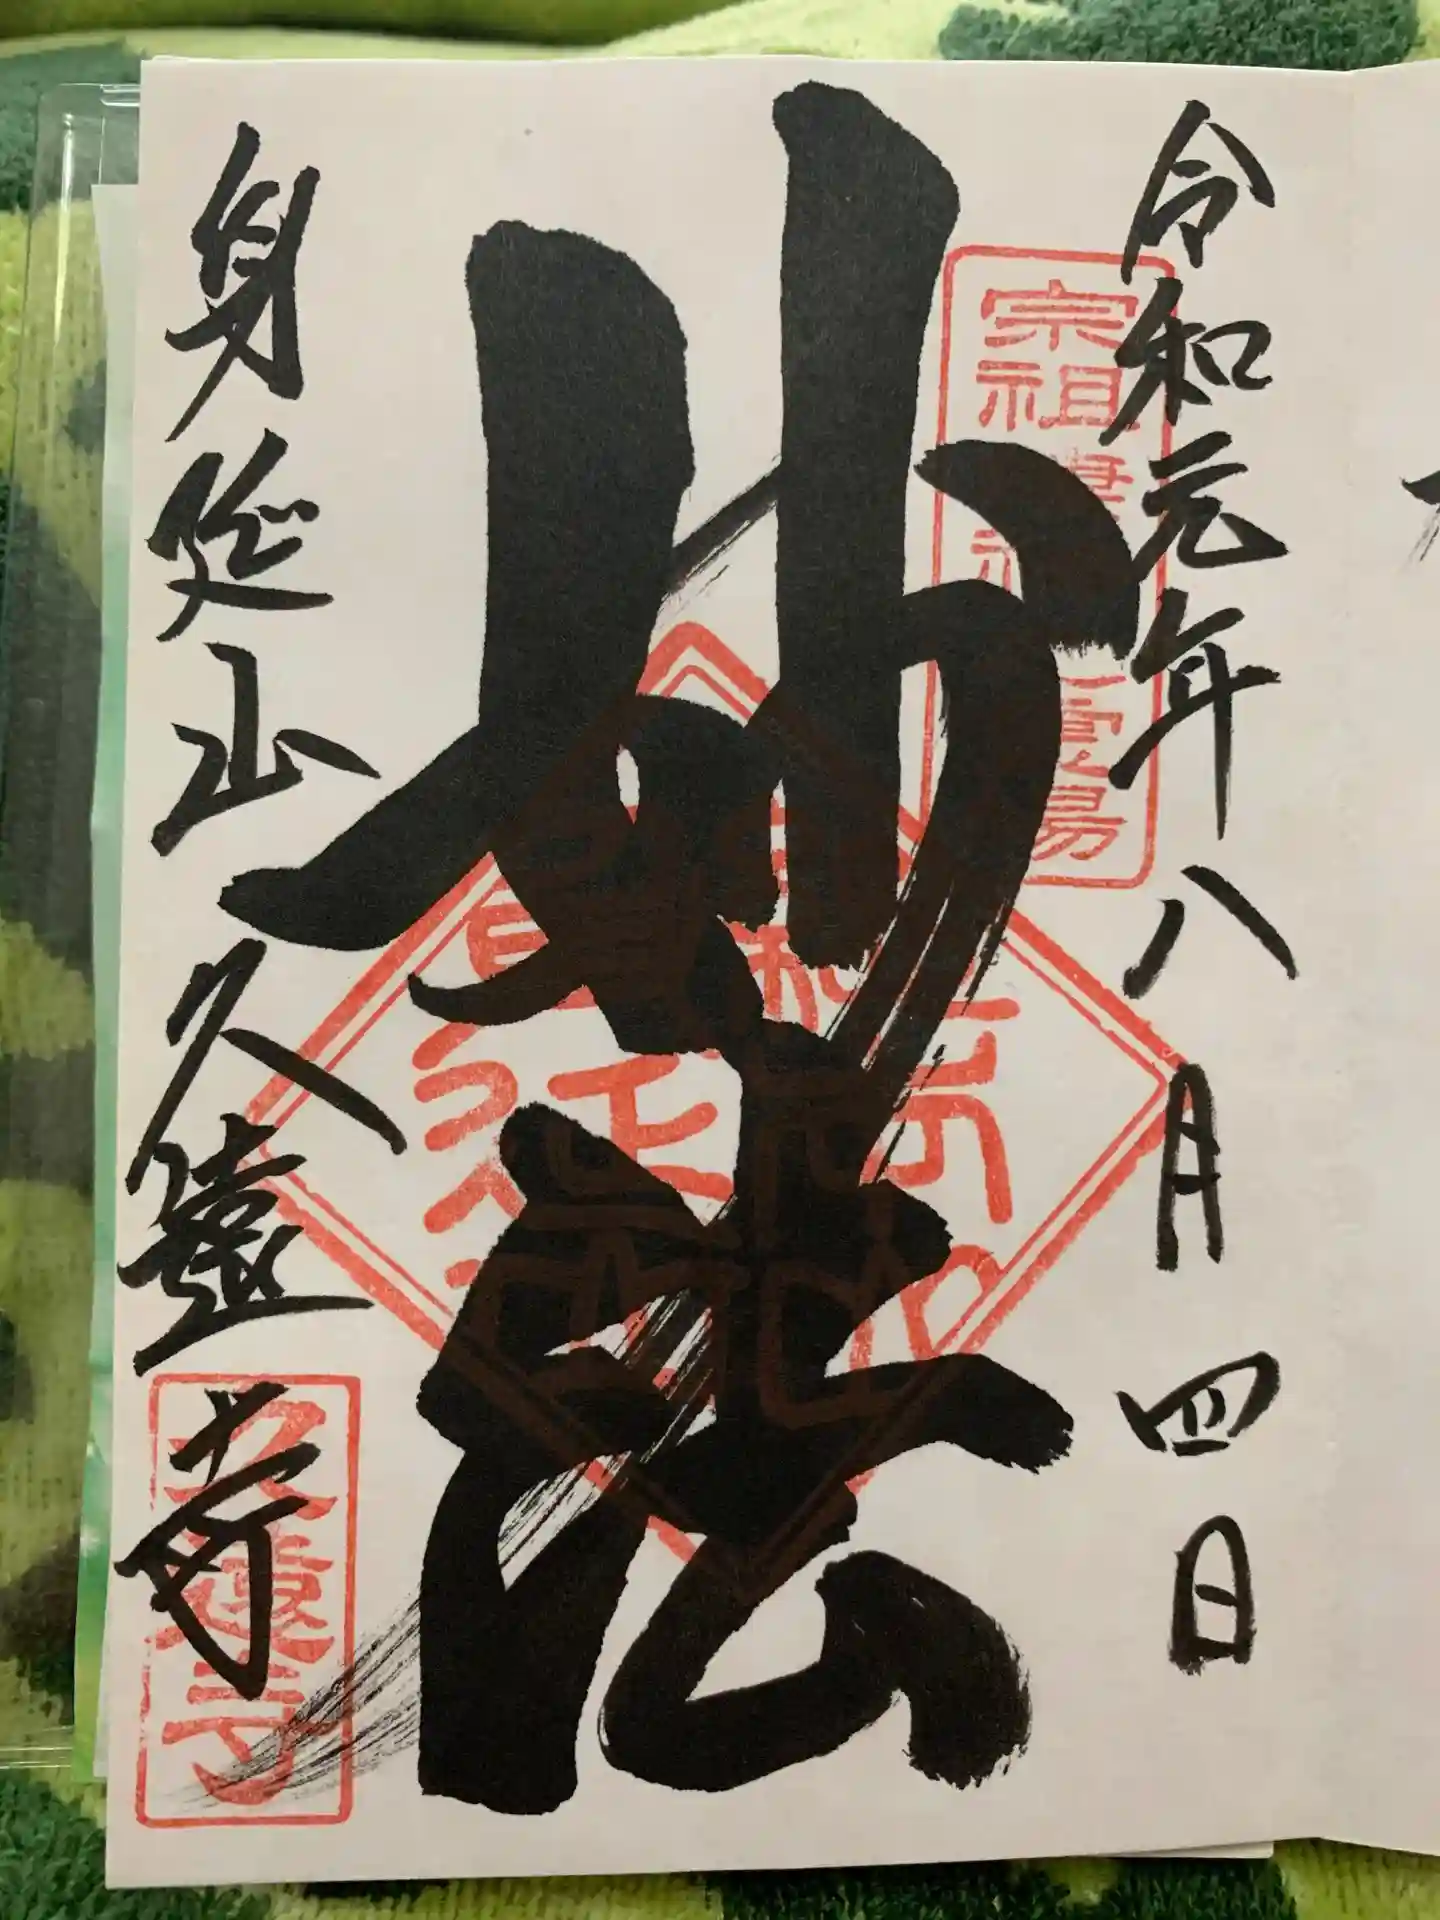 令和元年八月四日
宗祖棲神霊場
妙法
身延山久遠寺
久遠寺